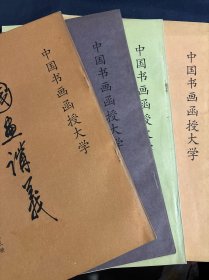 中国书画函授大学
国画讲义
中国书画函授大学
中国书画函授大学
中国书画函授大学